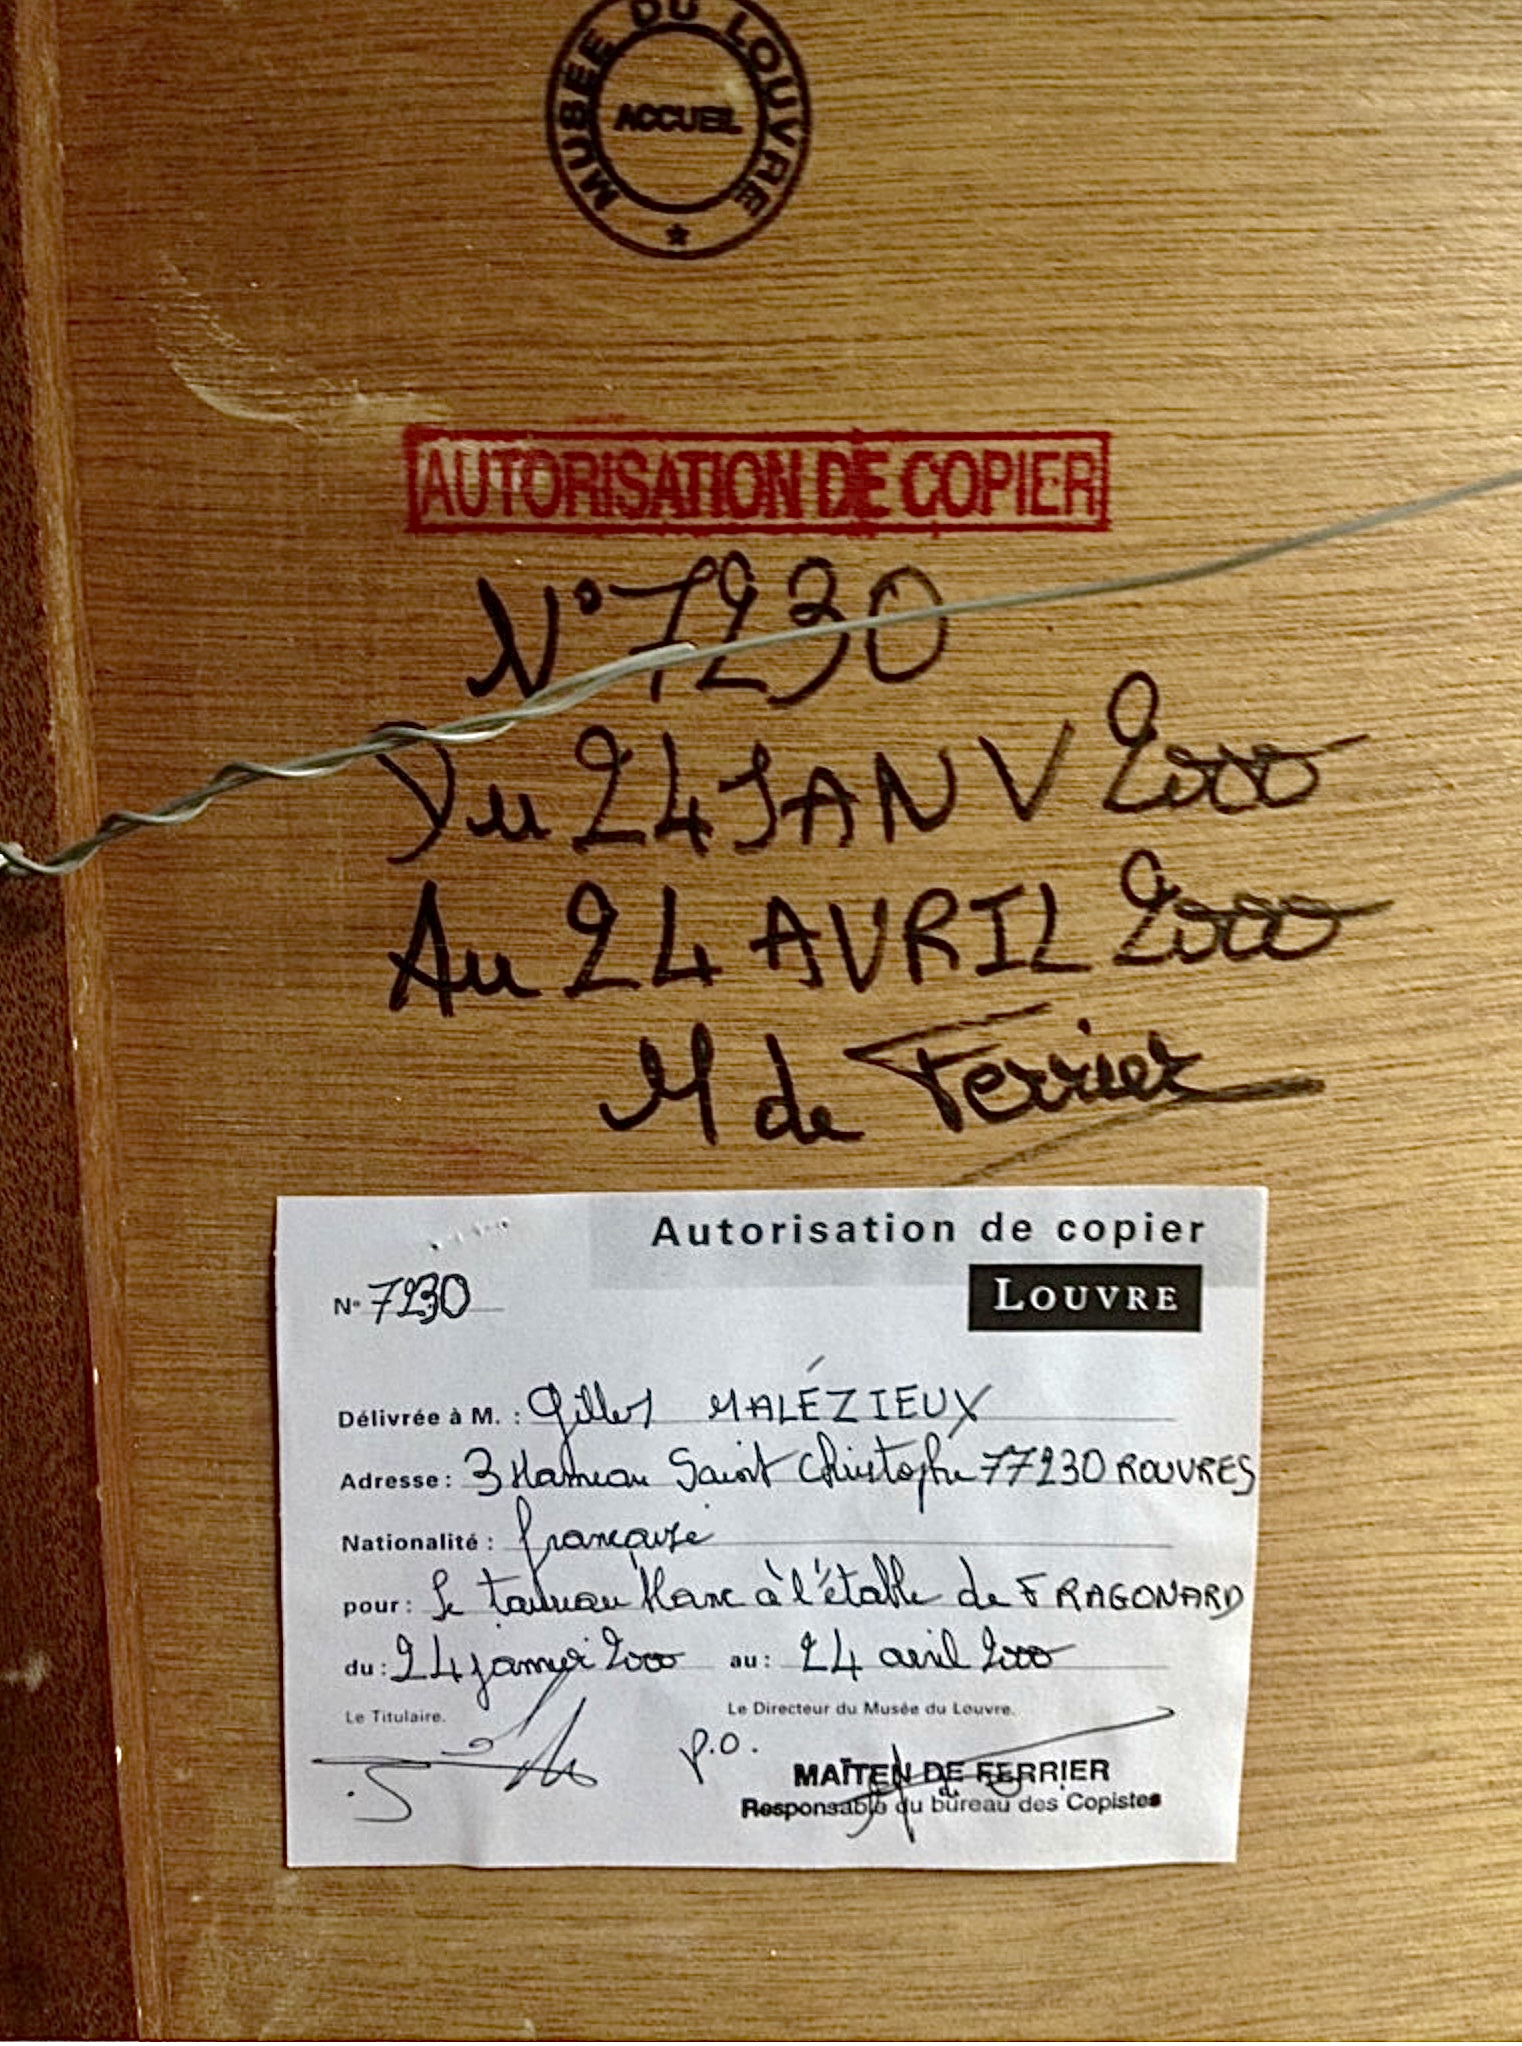 MUSEE DU LOUVRE
ACCUEIL
AUTORISATION DE COPIER
N° 7230
Du 24 JANV 2000
Au 24 AVRIL 2000
M de Ferrier
Autorisation de copier
LOUVRE
N° 7230
Délivrée à M. : Gilles MALÉZIEUX
Adresse : 3 Hameau Saint Christophe 77230 ROUVRES
Nationalité : française
pour : Le taureau blanc à l'étable de FRAGONARD
du : 24 janvier 2000 au : 24 avril 2000
Le Titulaire. Le Directeur du Musée du Louvre.
P.O.
MAÏTEN DE FERRIER
Responsable du bureau des Copistes